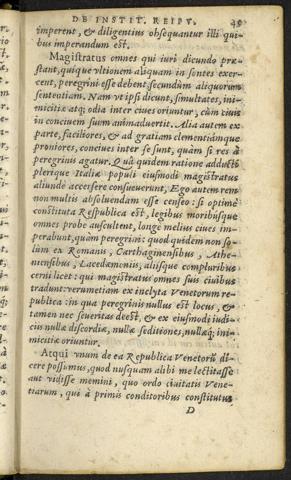 DE INSTIT. REIPV. 49
imperent, & diligentius obsequantur illi qui-
bus imperandum est.
Magistratus omnes qui iuri dicundo præ-
stant, quique vltionem aliquam in sontes exer-
cent, peregrini esse debent, secundum aliquorum
sententiam. Nam vt ipsi dicunt, simultates, ini-
micitiæ atq; odia inter ciues oriuntur, cùm ciuis
in conciuem suum animaduertit. Alia autem ex
parte, faciliores, & ad gratiam clementiámque
proniores, conciues inter se sunt, quàm si res à
peregrinis agatur. Quâ quidem ratione adducti
plerique Italiæ populi eiusmodi magistratus
aliunde accersere consueuerunt, Ego autem rem
non multis absoluendam esse censeo: si optimè
constituta Respublica est, legibus moribusque
omnes probe auscultent, longè melius ciues im-
perabunt, quàm peregrini: quod quidem non so-
lùm ex Romanis, Carthaginensibus, Athe-
niensibus, Lacedæmoniis, aliísque compluribus
cerni licet: qui magistratus omnes suis ciuibus
tradunt: verumetiam ex inclyta Venetorum re-
publica: in qua peregrinis nullus est locus, &
tamen nec seueritas deest, & ex eiusmodi iudi-
ciis nullæ discordiæ, nullæ seditiones, nullæq; ini-
micitiæ oriuntur.
Atqui vnum de ea Republica Venetorū di-
cere possumus, quod nusquam alibi me lectitasse
aut vidisse memini, quo ordo ciuitatis Vene-
tiarum, qui à primis conditoribus constitutus
D